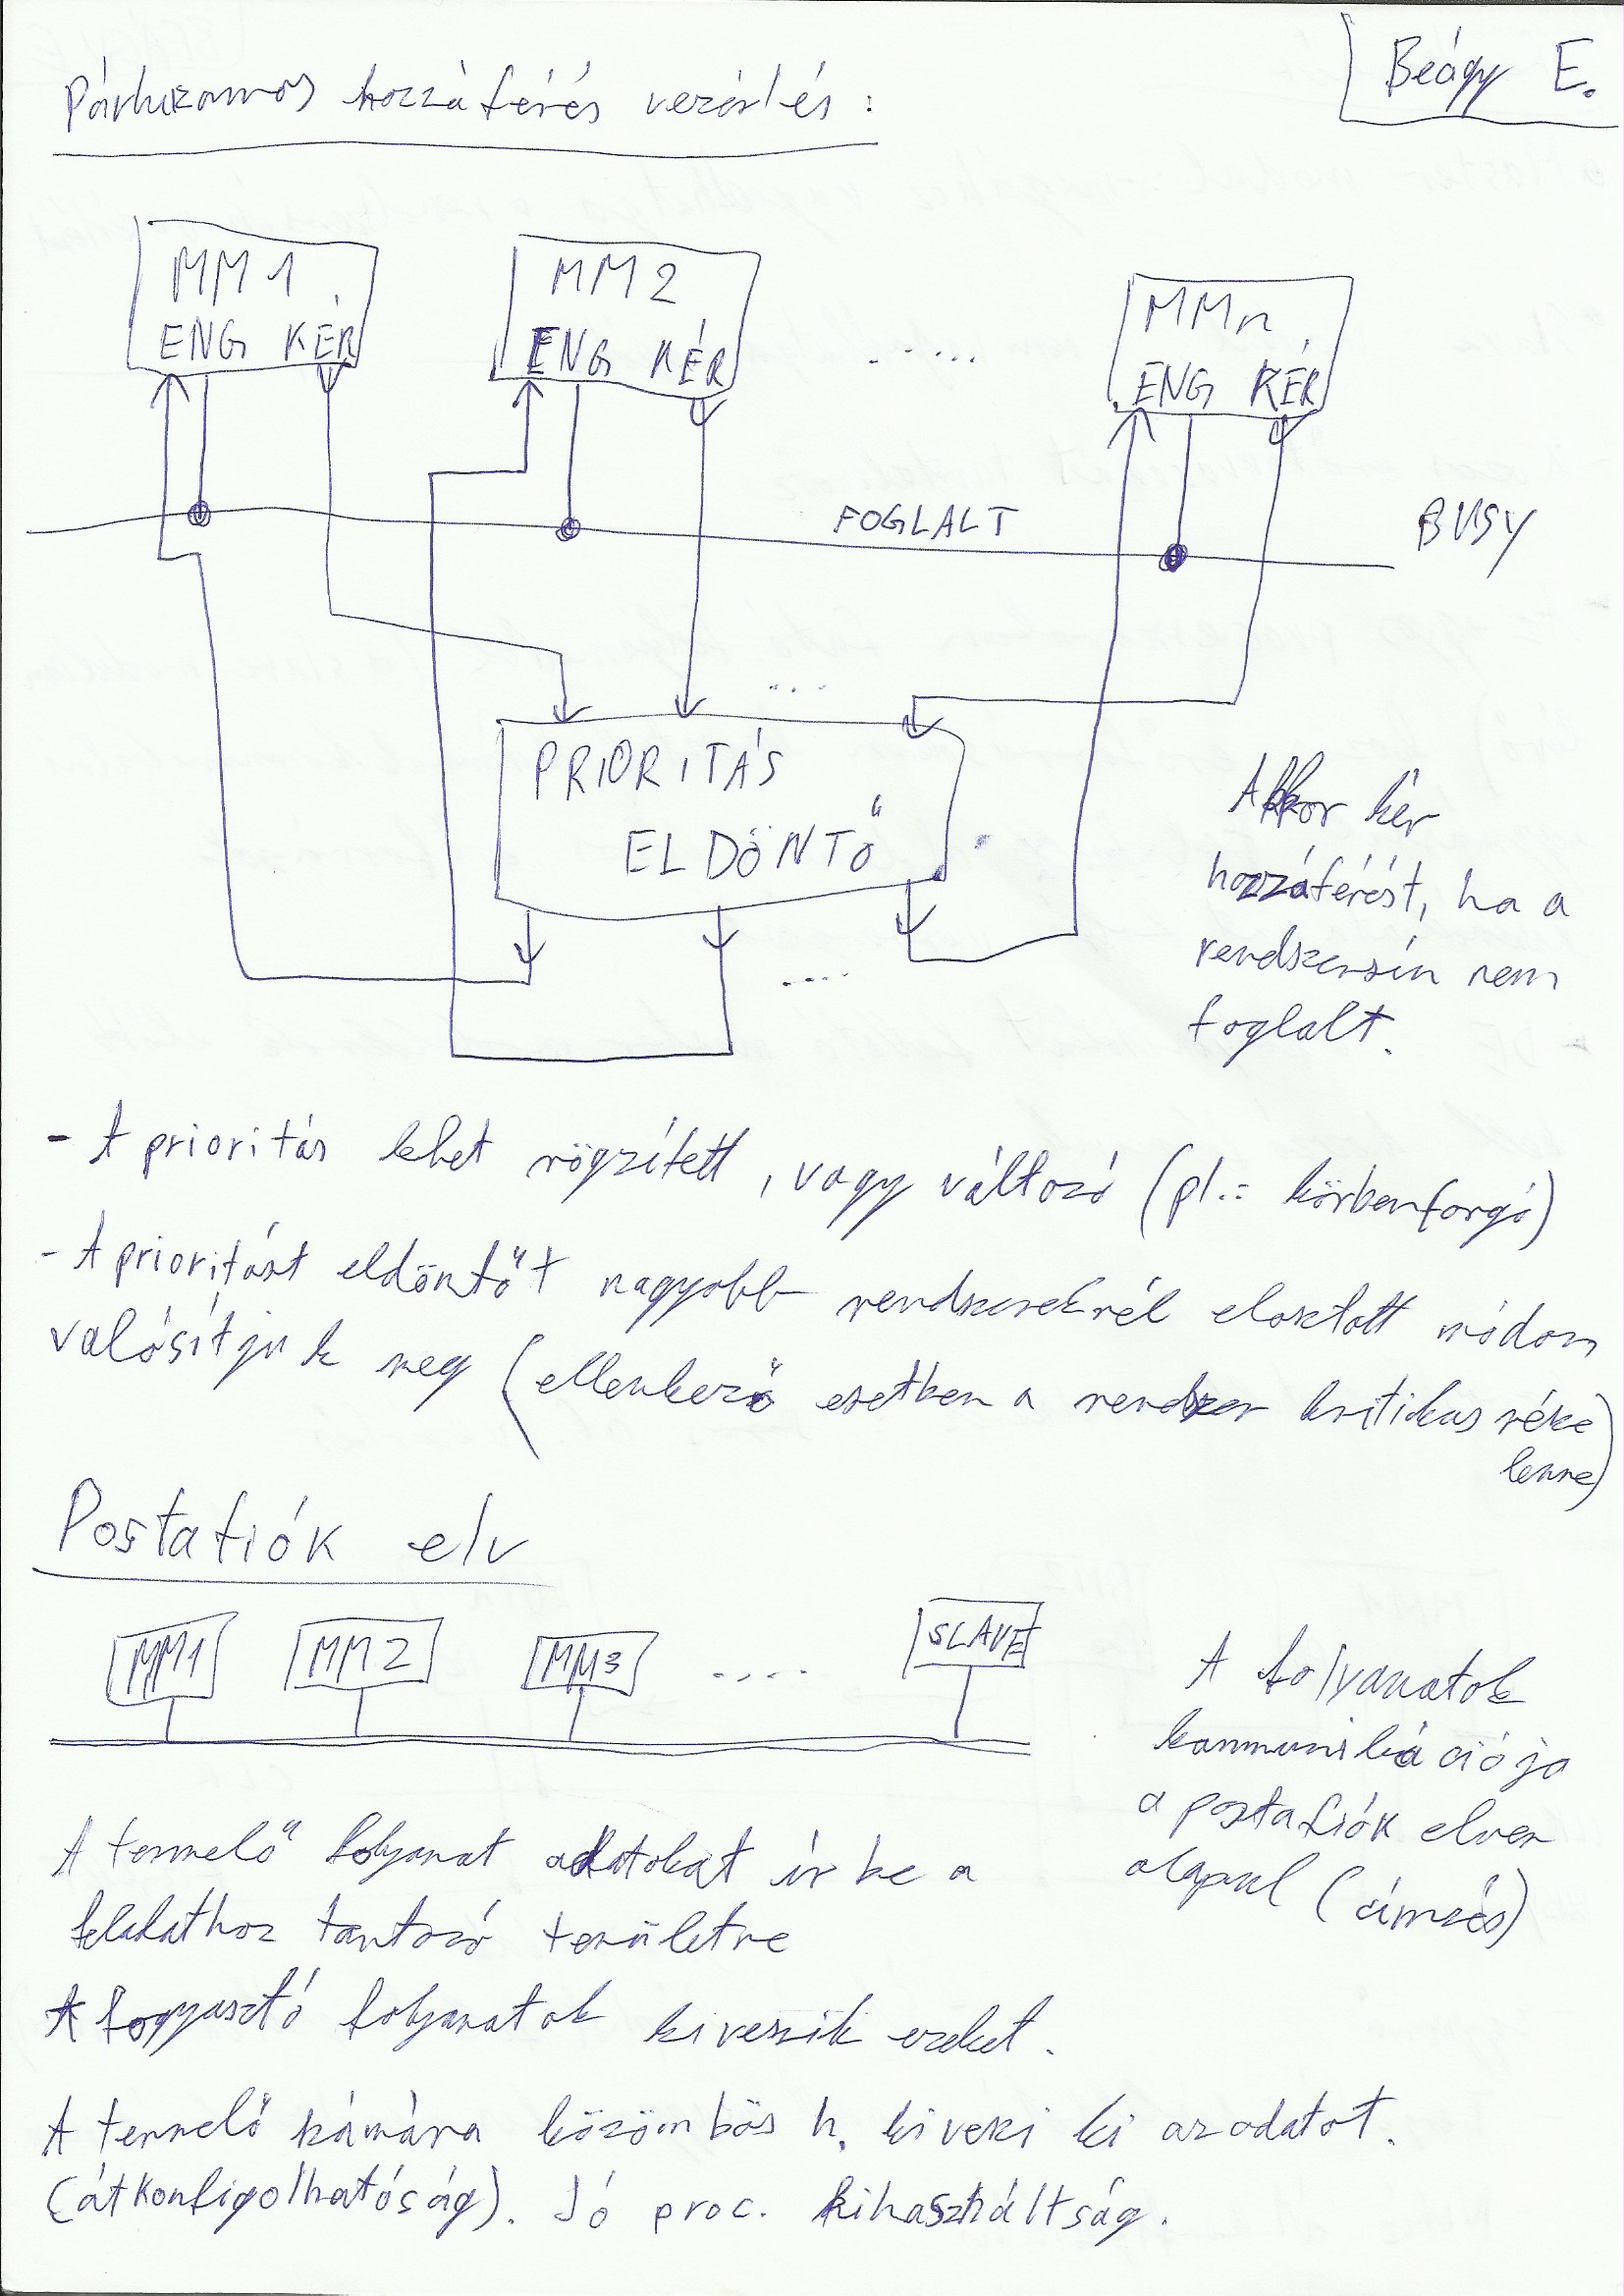 Beágy E.
Párhuzamos hozzáférés vezérlés:
MM1
ENG KÉR
MM2
ENG KÉR
.....
MMn
ENG KÉR
FOGLALT
BUSY
...
PRIORITÁS
ELDÖNTŐ
....
Akkor kér
hozzáférést, ha a
rendszersín nem
foglalt.
- A prioritás lehet rögzített, vagy változó (pl.: körbenforgó)
- A prioritást eldöntőt nagyobb rendszereknél elosztott módon
valósítjuk meg (ellenkező esetben a rendszer kritikus része
lenne)
Postafiók elv
MM1
MM2
MM3
....
SLAVE
A folyamatok
kommunikációja
a postafiók elven
alapul (címzés)
A termelő folyamat adatokat ír be a
feladathoz tartozó területre
A fogyasztó folyamatok kiveszik ezeket.
A termelő számára közömbös h. ki veszi ki az adatot.
(átkonfigolhatóság). Jó proc. kihasználtság.